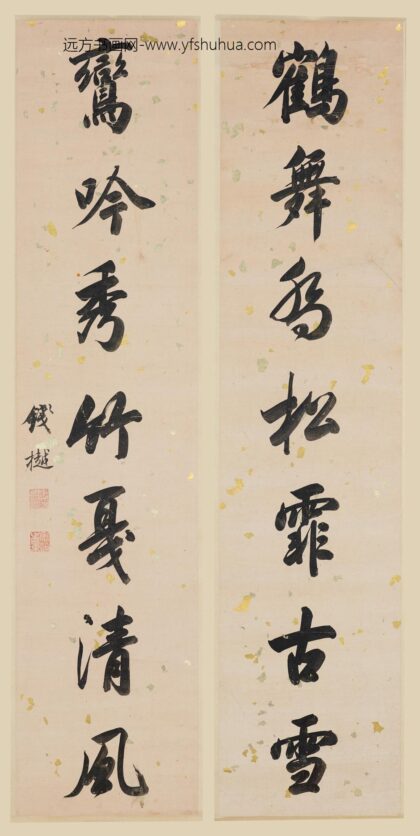 远方书画网-www.yfshuhua.com
鶴舞喬松霏古雪
鸞吟秀竹戛清風
錢樾